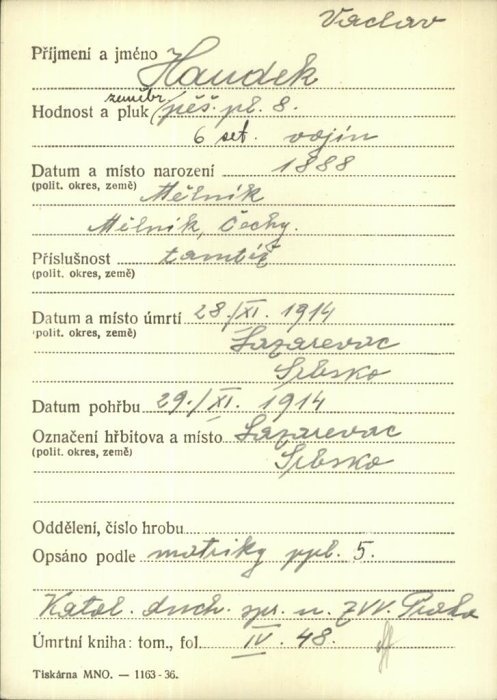 Vaclav
Příjmení a jméno Haudek
zeměbr.
Hodnost a pluk pěš. pl. 8.
6 set. vojín
Datum a místo narození 1888
(polit. okres, země)
Mělník
Mělník, Čechy.
Příslušnost tamtéž
(polit. okres, země)
Datum a místo úmrtí 28./XI. 1914
(polit. okres, země)
Lazarevac
Srbsko
Datum pohřbu 29./XI. 1914
Označení hřbitova a místo Lazarevac
(polit. okres, země)
Srbsko
Oddělení, číslo hrobu
Opsáno podle matriky ppl. 5.
Katol. duch. spr. u ZVV. Praha
Úmrtní kniha: tom., fol. IV. 48.
Tiskárna MNO. — 1163-36.